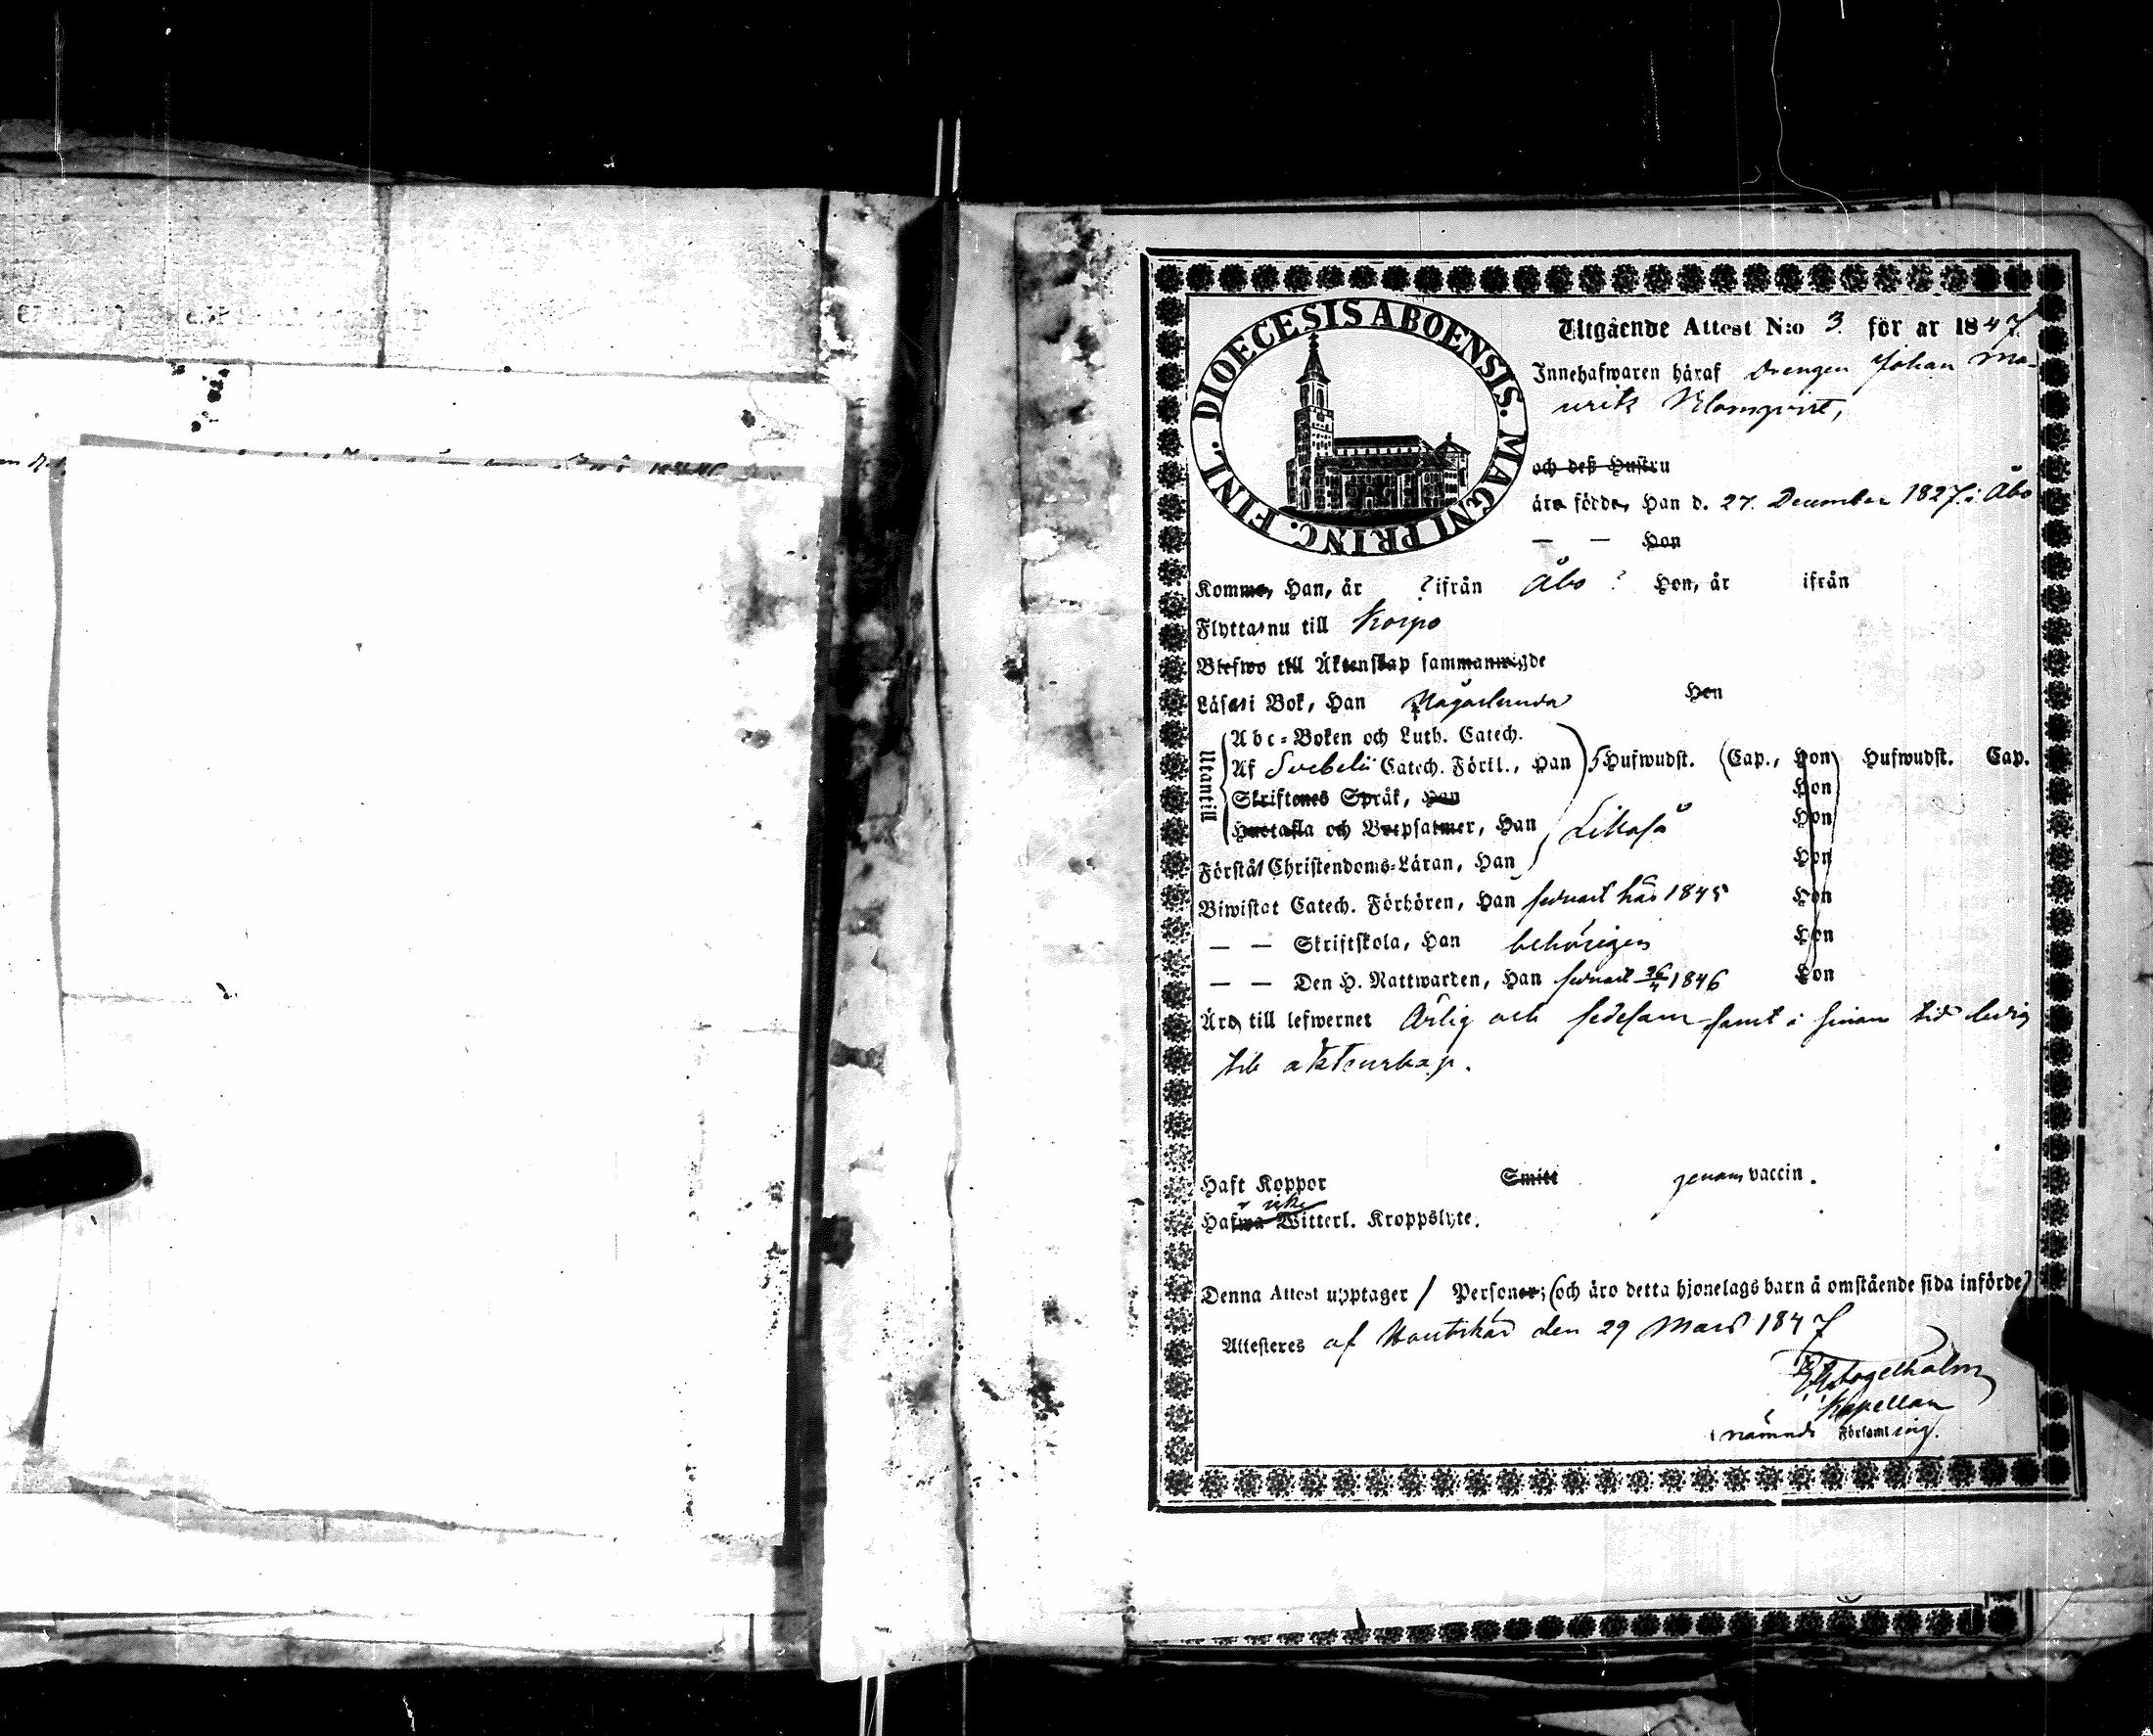 DIOECESIS ABOENSIS. MAGNI PRINC. FINL.
Utgående Attest N:o 3 för år 1847
Innehafwaren häraf Drengen Johan Ma-
uritz Blomqvist,
och deß Hustru
äro födde, Han d. 27. December 1827. i Åbo
— — Hon
Komme, Han, år ? ifrån Åbo ? Hon, år ifrån
Flyttas nu till Korpo
Blefwo till Äktenskap sammanwigde
Läsa i Bok, Han Någorlunda Hon
Utantill
Abc-Boken och Luth. Catech.
Af Svebelii Catech. Förkl., Han 5 Hufwudst. (Cap., Hon Hufwudst. Cap.
Skriftenes Språk, Han Hon
Hustafla och Botpsalmer, Han Likaså Hon
Förstå Christendoms-Läran, Han Hon
Biwistat Catech. Förhören, Han senast här 1845 Hon
— — Skriftskola, Han behörigen Hon
— — Den H. Nattwarden, Han senast 26/ 1846 Hon
Äro till lefwernet Ärlig och sedesam samt i sinom tid ledig
till äktenskap.
Haft Koppor Smitt genom vaccin.
icke
Hafwa Witterl. Kroppslyte.
Denna Attest upptager / Personer; (och äro detta hjonelags barn å omstående sida införde)
Attesteres af Houtskär den 29 Mars 1847
Kapellan
i nämnde Församling.